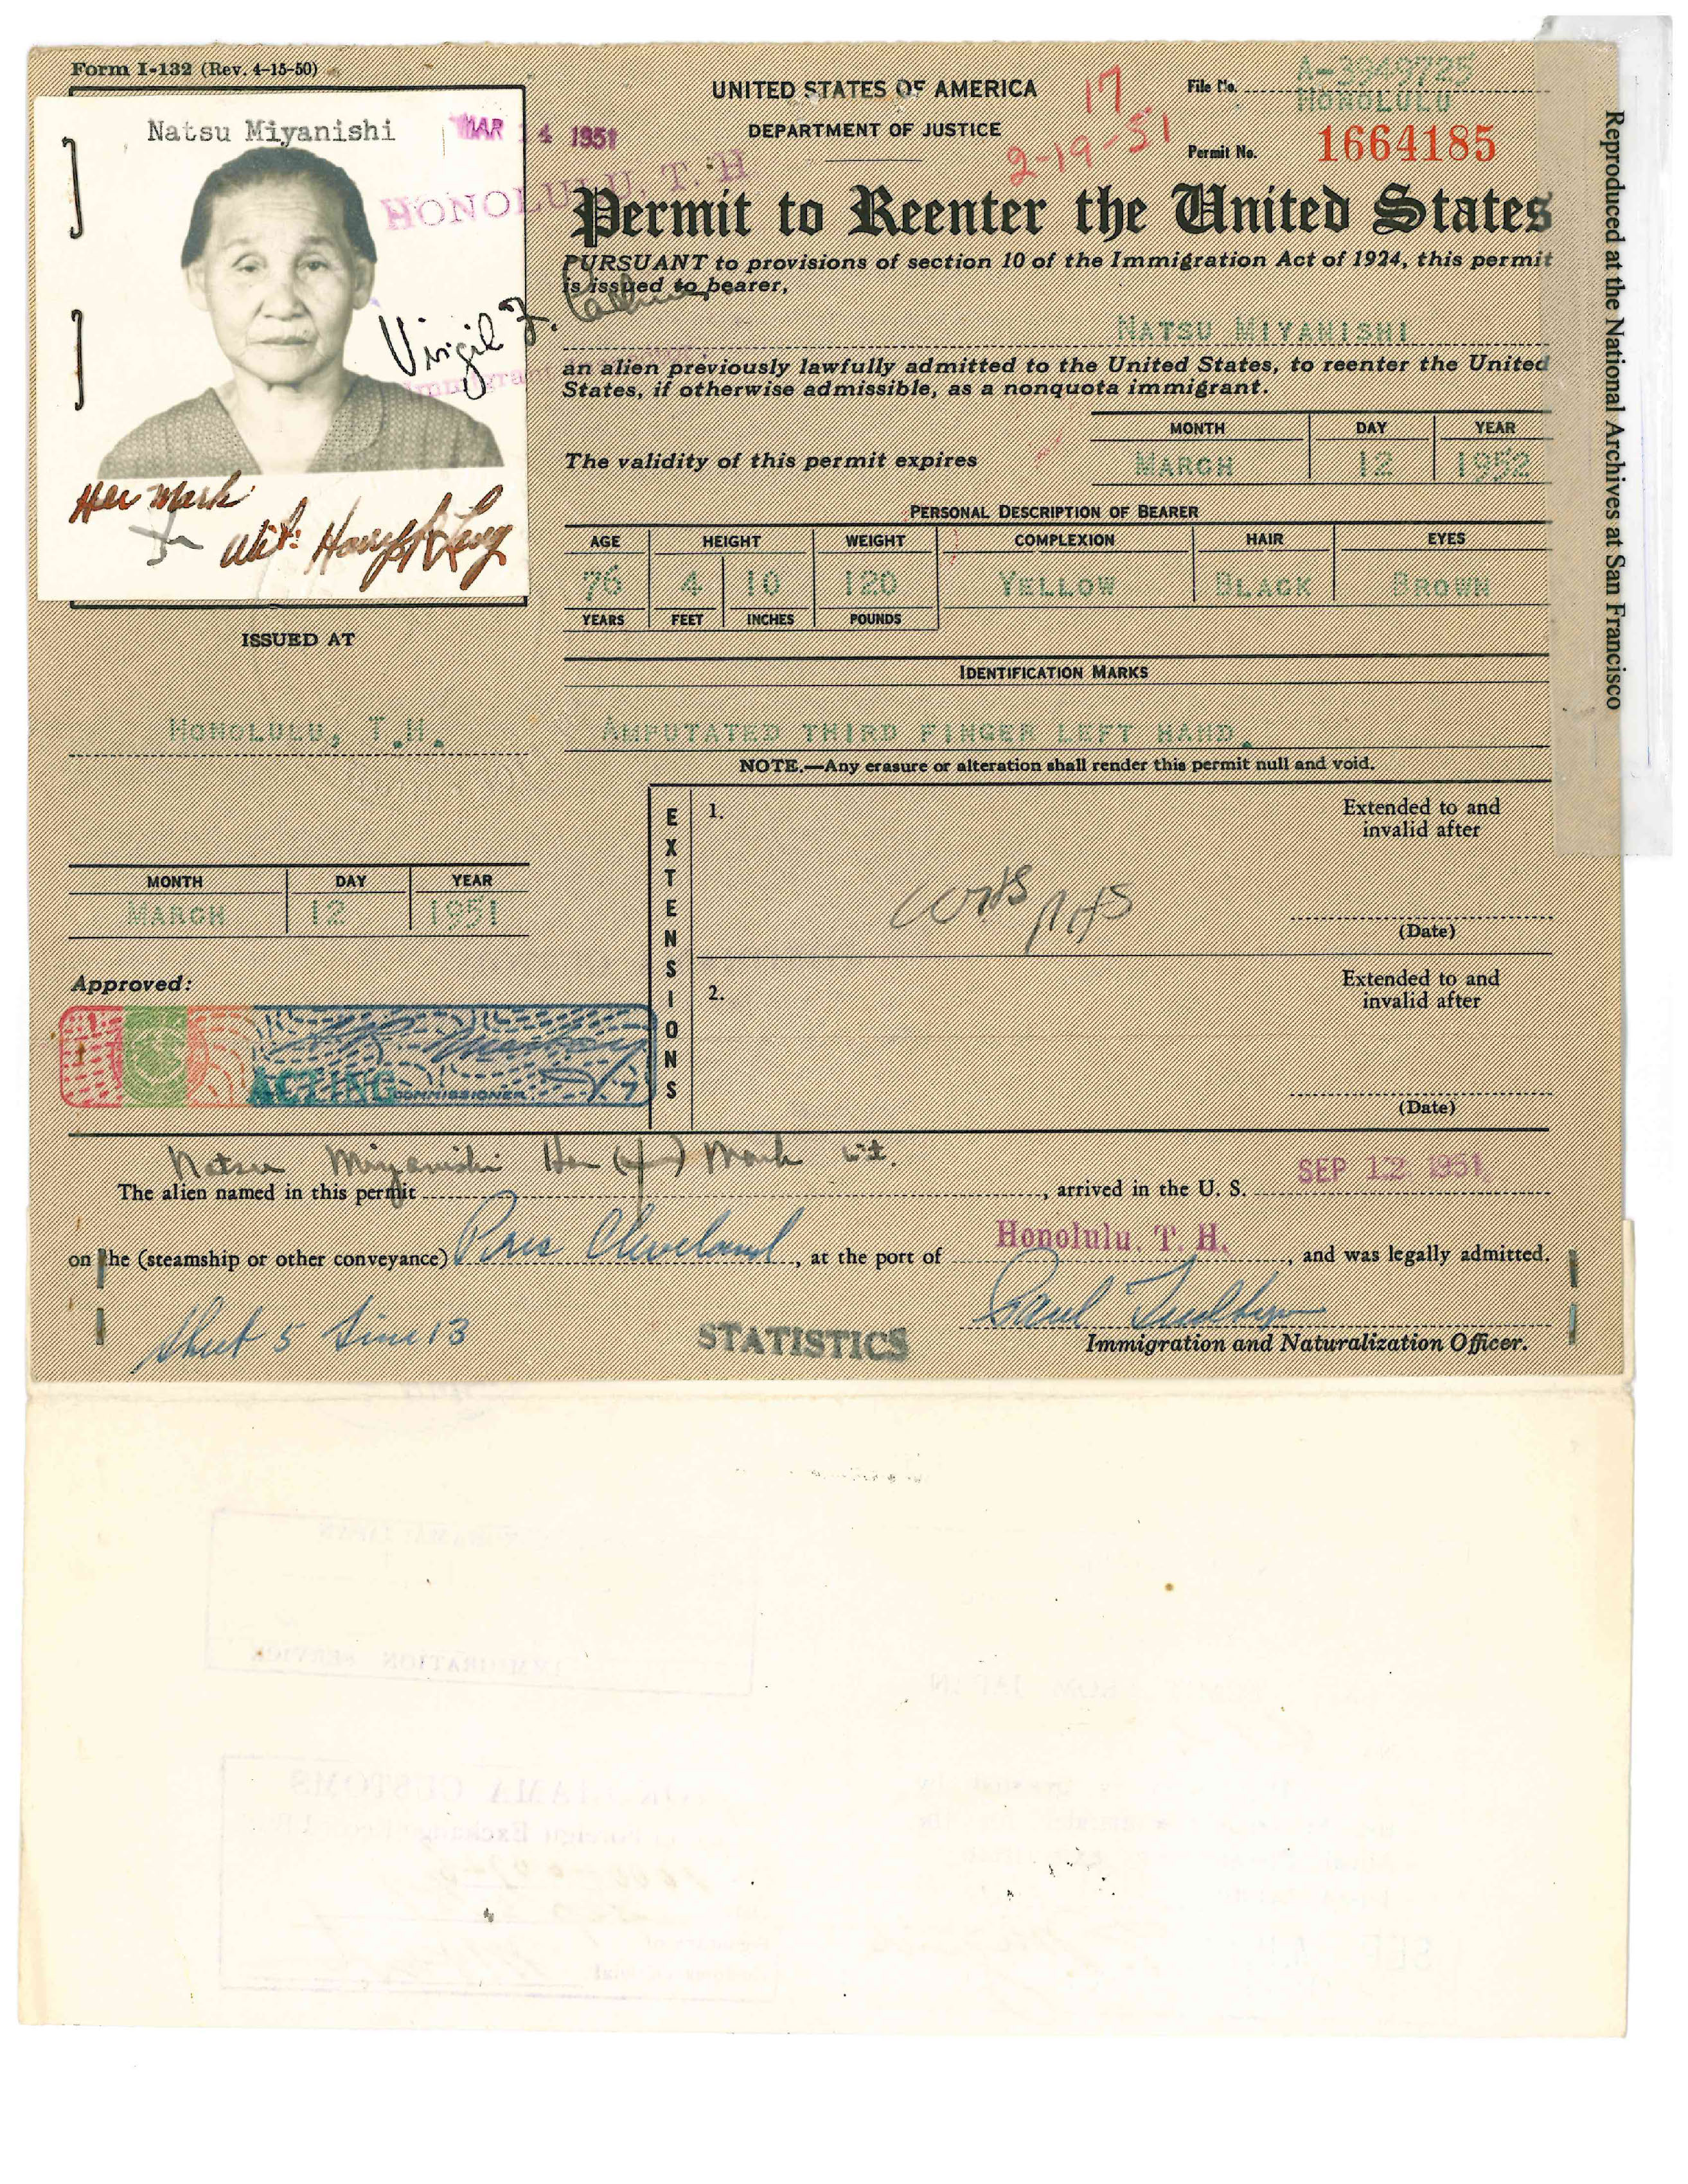 Form I-132 (Rev. 4-15-50)
Natsu Miyanishi
MAR 14 1951
HONOLULU, T. H
Virgil F.
Her Mark
Wit:
UNITED STATES OF AMERICA
DEPARTMENT OF JUSTICE
17.
2-19-51
File No. A-3949725
HONOLULU
Permit No. 1664185
Permit to Reenter the United States
PURSUANT to provisions of section 10 of the Immigration Act of 1924, this permit
is issued to bearer,
NATSU MIYANISHI
an alien previously lawfully admitted to the United States, to reenter the United
States, if otherwise admissible, as a nonquota immigrant.
MONTH DAY YEAR
The validity of this permit expires MARCH 12 1952
PERSONAL DESCRIPTION OF BEARER
AGE HEIGHT WEIGHT COMPLEXION HAIR EYES
76 4 10 120 YELLOW BLACK BROWN
YEARS FEET INCHES POUNDS
IDENTIFICATION MARKS
AMPUTATED THIRD FINGER LEFT HAND.
NOTE.—Any erasure or alteration shall render this permit null and void.
ISSUED AT
HONOLULU, T.H.
MONTH DAY YEAR
MARCH 12 1951
Approved:
ACTING COMMISSIONER
EXTENSIONS
1.
Extended to and
invalid after
(Date)
2.
Extended to and
invalid after
(Date)
Natsu Miyanishi Her Mark wit.
The alien named in this permit, arrived in the U. S. SEP 12 1951
on the (steamship or other conveyance) Pres Cleveland, at the port of Honolulu, T. H., and was legally admitted.
Sheet 5 Line 13
STATISTICS
Immigration and Naturalization Officer.
Reproduced at the National Archives at San Francisco